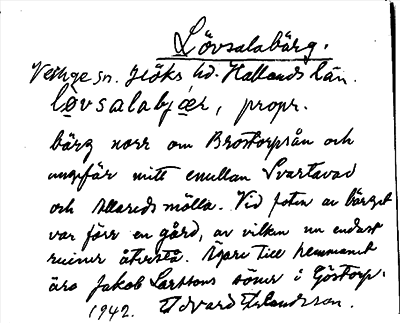 Lövsalabärg.
Veinge sn. Höks hd. Hallands län.
lövsalabjær, propr.
bärg norr om Brostorpsån och
ungefär mitt emellan Svartavad
och Allareds mölla. Vid foten av bärget
var förr en gård, av vilken nu endast
ruiner återstå. Ägare till hemmanet
äro Jakob Larssons söner i Göstorp.
1942. Edvard Erlandsson.